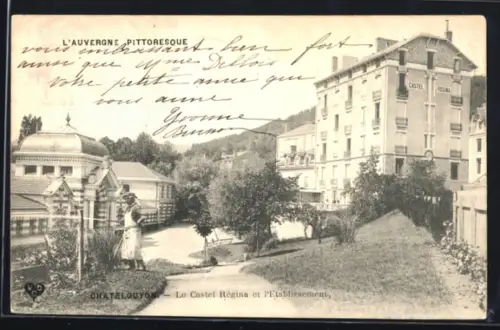 L'AUVERGNE PITTORESQUE
vous embrassant bien fort
ainsi que Mme Dellois
votre petite amie qui
vous aime
Yvonne
CASTEL RÉGINA
CHATELGUYON. - Le Castel Régina et l'Etablissement.